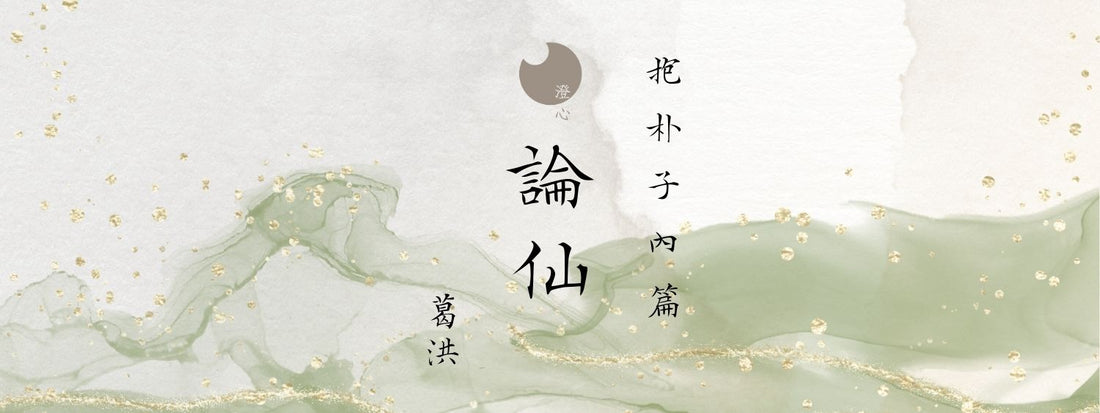 抱朴子內篇
澄心
論仙
葛洪